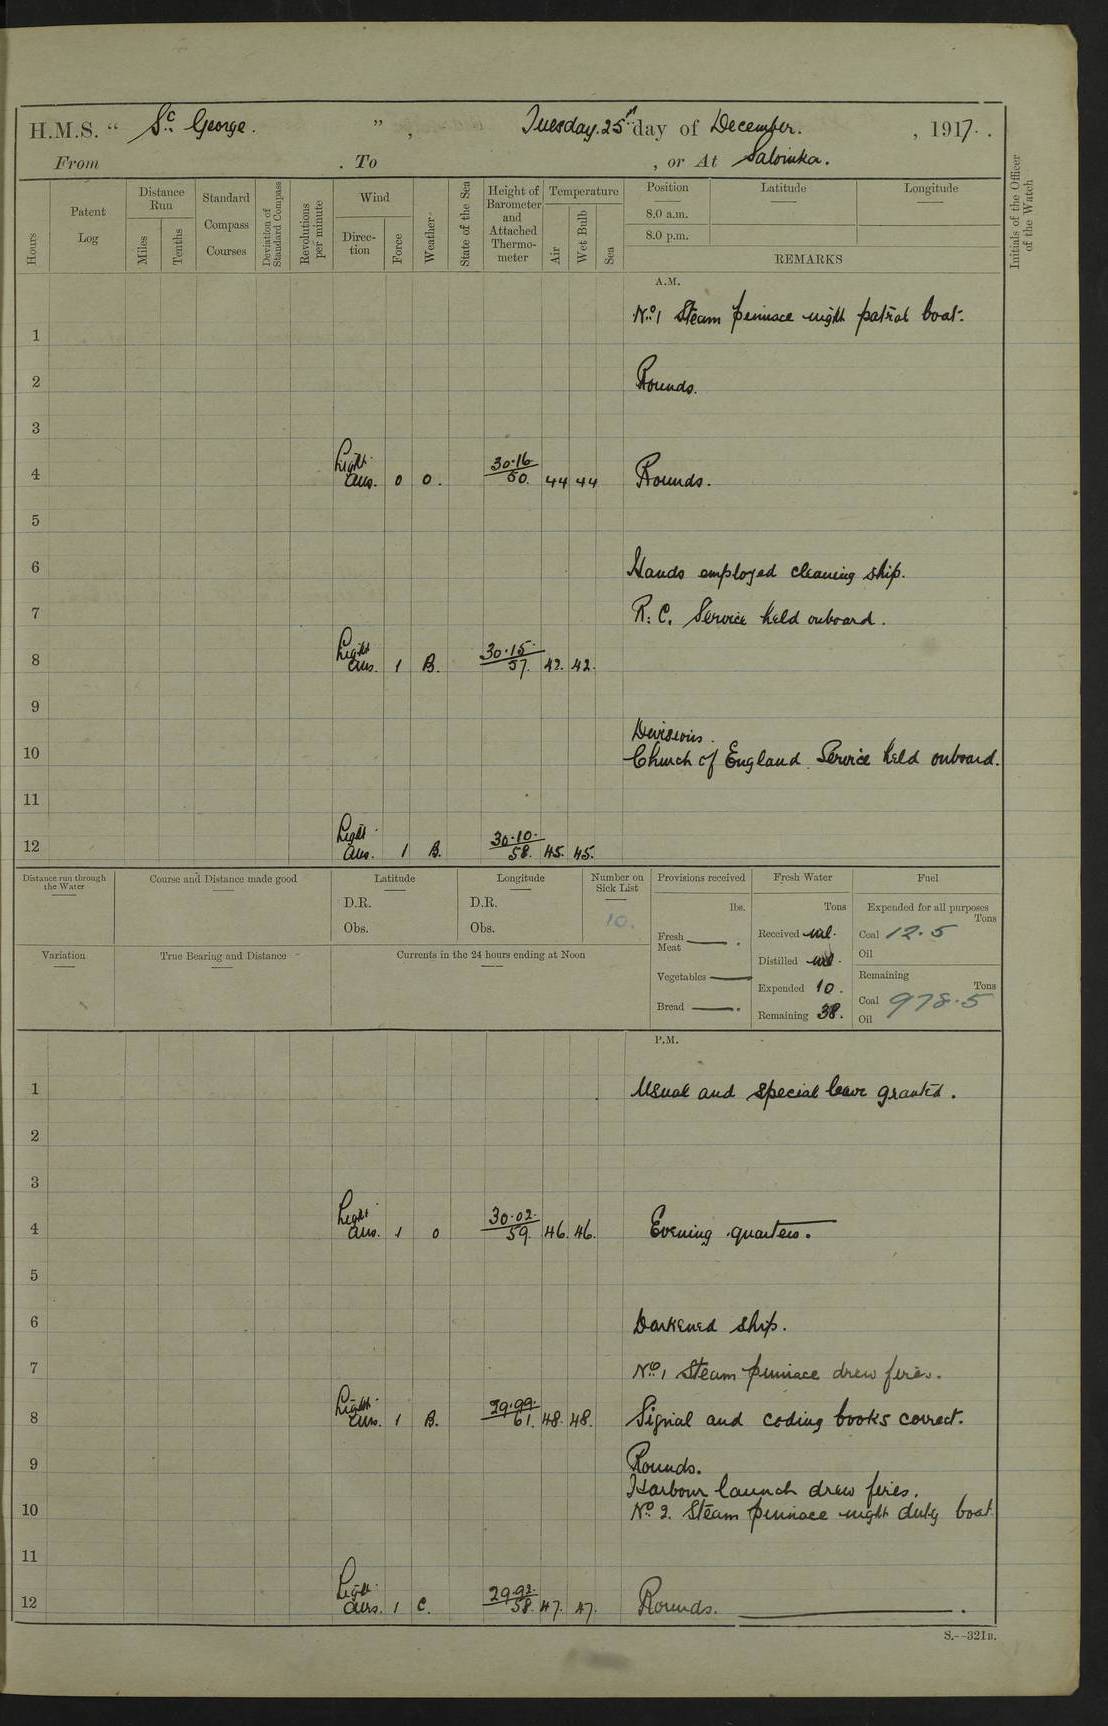 H.M.S. “ St George. ” , Tuesday. 25th day of December. , 1917.
From . To , or At Salonika.
Hours
Patent Log
Distance Run
Miles
Tenths
Standard Compass Courses
Deviation of Standard Compass
Revolutions per minute
Wind
Direction
Force
Weather
State of the Sea
Height of Barometer and Attached Thermometer
Temperature
Air
Wet Bulb
Sea
Position
Latitude
Longitude
8.0 a.m.
8.0 p.m.
REMARKS
Initials of the Officer of the Watch
A.M.
No. 1 Steam pinnace night patrol boat.
1
2 Rounds.
3
4 Light airs. 0 O. 30.16 50. 44 44 Rounds.
5
6 Hands employed cleaning ship.
7 R.C. Service held onboard.
8 Light airs. 1 B. 30.15 57. 42. 42.
9
Divisions.
10 Church of England Service held onboard.
11
12 Light airs. 1 B. 30.10. 58. 45. 45.
Distance run through the Water
Course and Distance made good
Latitude
D.R.
Obs.
Longitude
D.R.
Obs.
Number on Sick List
10.
Provisions received
lbs.
Fresh Meat
Vegetables
Bread
Fresh Water
Tons
Received nil.
Distilled nil.
Expended 10.
Remaining 38.
Fuel
Expended for all purposes
Tons
Coal 12.5
Oil
Remaining
Tons
Coal 978.5
Oil
Variation
True Bearing and Distance
Currents in the 24 hours ending at Noon
P.M.
1 Usual and special leave granted.
2
3
4 Light airs. 1 O 30.02. 59. 46. 46. Evening quarters.
5
6 Darkened ship.
7 No. 1 Steam pinnace drew fires.
8 Light airs. 1 B. 29.99. 61. 48. 48. Signal and coding books correct.
9 Rounds.
Harbour launch drew fires.
10 No. 2. Steam pinnace night duty boat
11
12 Light airs. 1 C. 29.92. 58. 47. 47. Rounds.
S.--321B.